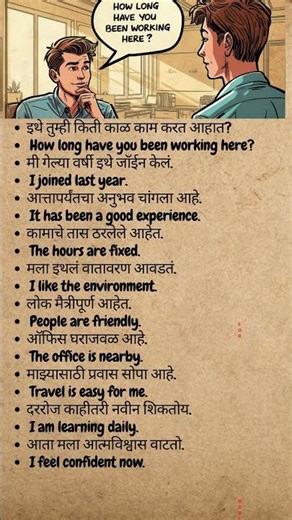 HOW LONG
HAVE YOU
BEEN WORKING
HERE ?
• इथे तुम्ही किती काळ काम करत आहात?
• How long have you been working here?
• मी गेल्या वर्षी इथे जॉईन केलं.
• I joined last year.
• आत्तापर्यंतचा अनुभव चांगला आहे.
• It has been a good experience.
• कामाचे तास ठरलेले आहेत.
• The hours are fixed.
• मला इथलं वातावरण आवडतं.
• I like the environment.
• लोक मैत्रीपूर्ण आहेत.
• People are friendly.
• ऑफिस घराजवळ आहे.
• The office is nearby.
• माझ्यासाठी प्रवास सोपा आहे.
• Travel is easy for me.
• दररोज काहीतरी नवीन शिकतोय.
• I am learning daily.
• आता मला आत्मविश्वास वाटतो.
• I feel confident now.